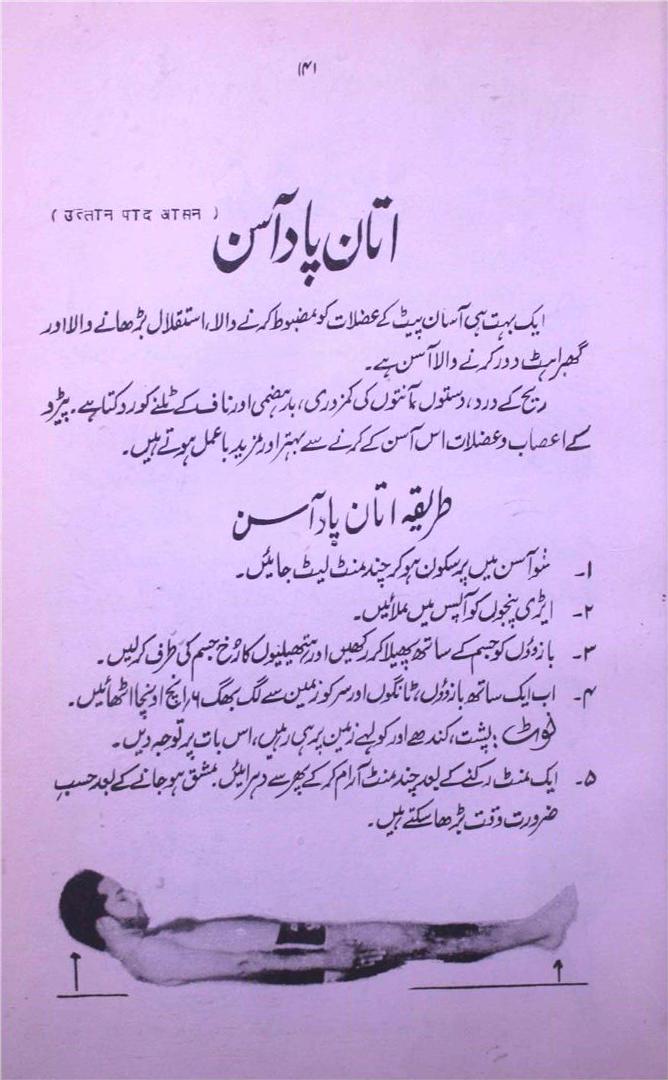 (۱۴)
( उत्तान पाद आसन )
اتان پاد آسن
ایک بہت ہی آسان پیٹ کے عضلات کو مضبوط کرنے والا، استقلال بڑھانے والا اور
گھبراہٹ دور کرنے والا آسن ہے۔
ریح کے درد، دستوں، آنتوں کی کمزوری، بدہضمی اور ناف کے ٹلنے کو روکتا ہے۔ پیڑو
کے اعصاب و عضلات اس آسن کے کرنے سے بہتر اور مزید باعمل ہوتے ہیں۔
طریقہ اتان پاد آسن
۱۔ شو آسن میں پرسکون ہو کر چند منٹ لیٹ جائیں۔
۲۔ ایڑی پنجوں کو آپس میں ملائیں۔
۳۔ بازوؤں کو جسم کے ساتھ پھیلا کر رکھیں اور ہتھیلیوں کا رُخ جسم کی طرف کرلیں۔
۴۔ اب ایک ساتھ بازوؤں، ٹانگوں اور سر کو زمین سے لگ بھگ ۶ انچ اونچا اٹھائیں۔
نوٹ: پشت، کندھے اور کولہے زمین پر ہی رہیں، اس بات پر توجہ دیں۔
۵۔ ایک منٹ رکنے کے بعد چند منٹ آرام کرکے پھر سے دہرائیں۔ مشق ہو جانے کے بعد حسبِ
ضرورت وقت بڑھا سکتے ہیں۔